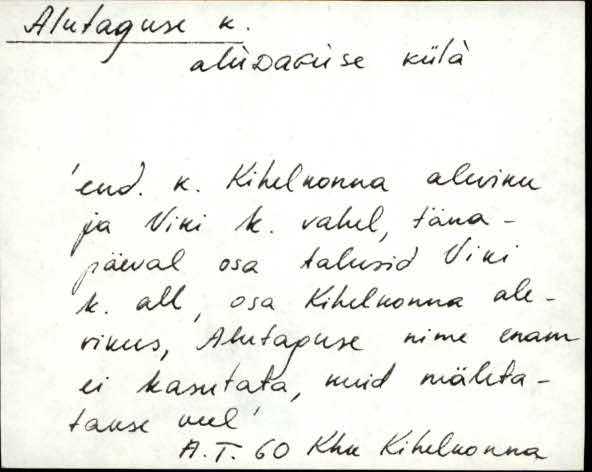 Alutaguse k.
aluDaGuse külà
'end. k. Kihelkonna aleviku
ja Viki k. vahel, täna-
päeval osa talusid Viki
k. all, osa Kihelkonna ale-
vikus, Alutaguse nime enam
ei kasutata, kuid mäleta-
takse veel'
A.T. 60 Khk Kihelkonna